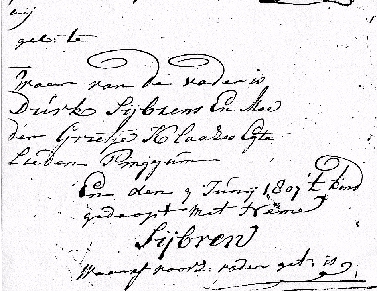 geb: te
waar van de vader is
Durk Sijbrens En Moe
der Grietje Klaases Egte
Lieden Pingjum
En den 7 Junij 1807 't kind
gedoopt met Name
Sijbren
waaraf voord: vader get: is